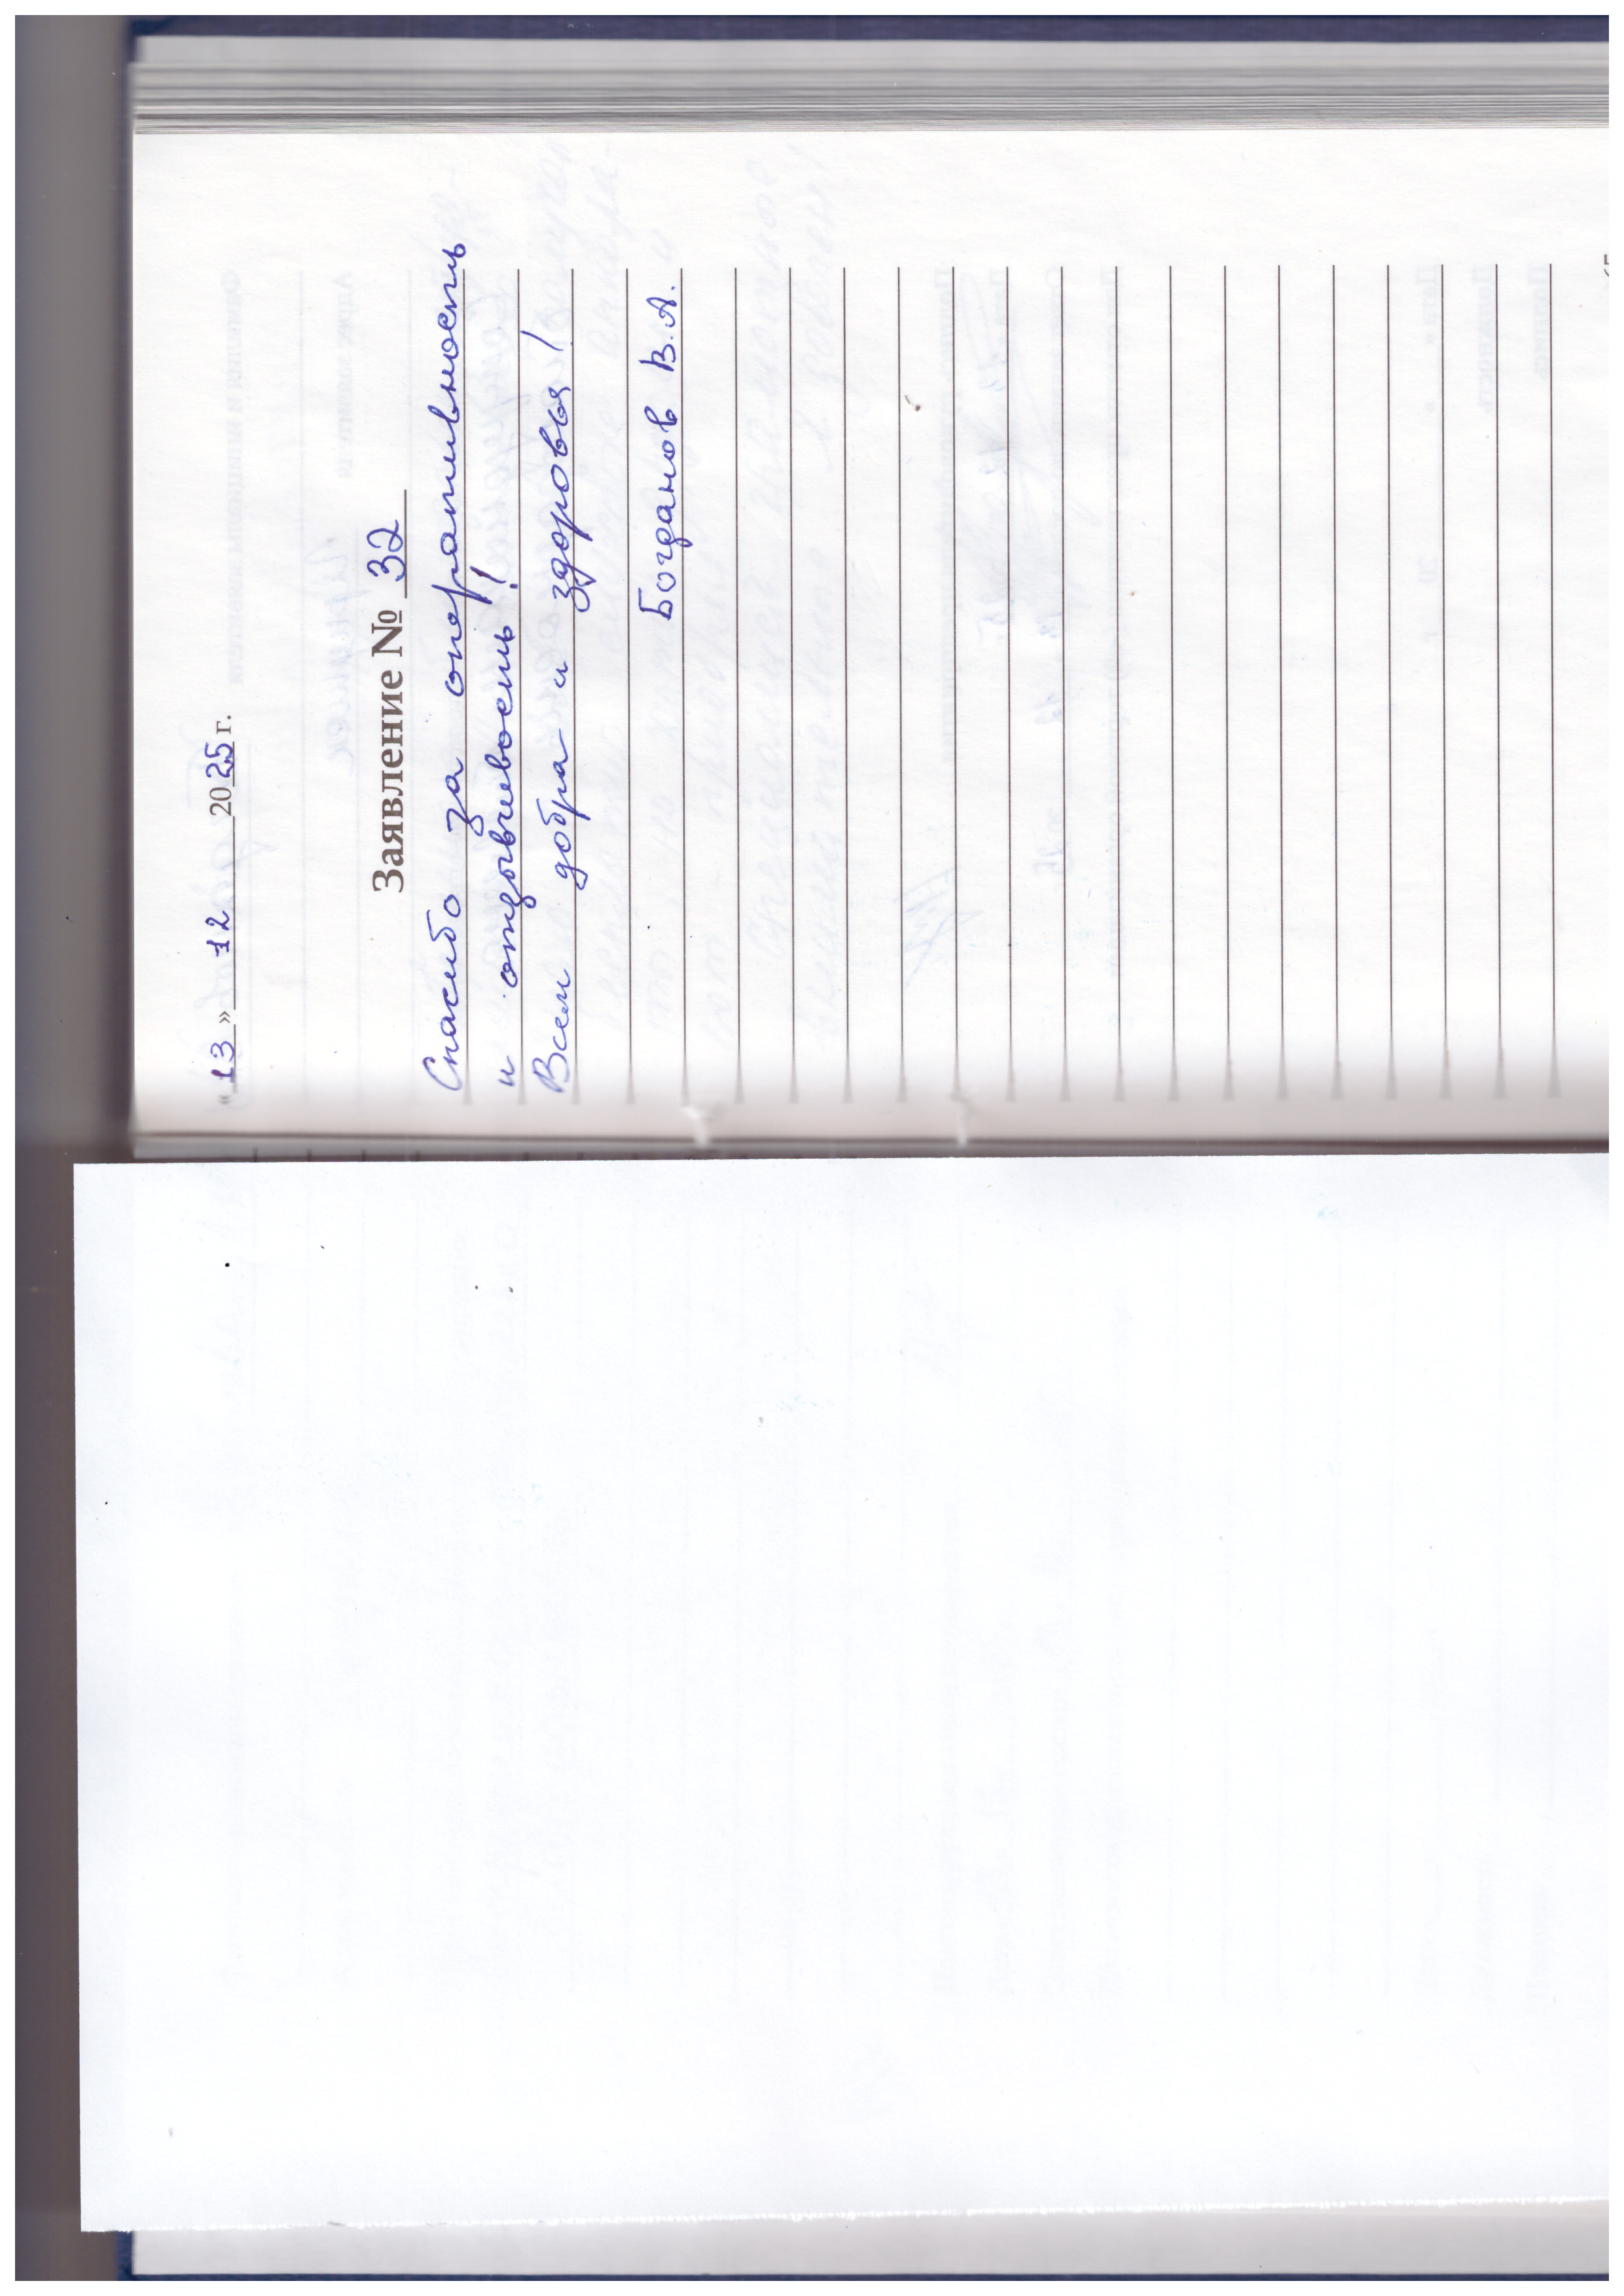 «13» 12 2025 г.
Заявление № 32
Спасибо за оперативность
и отзывчивость!
Всем добра и здоровья!
Богданов В.А.